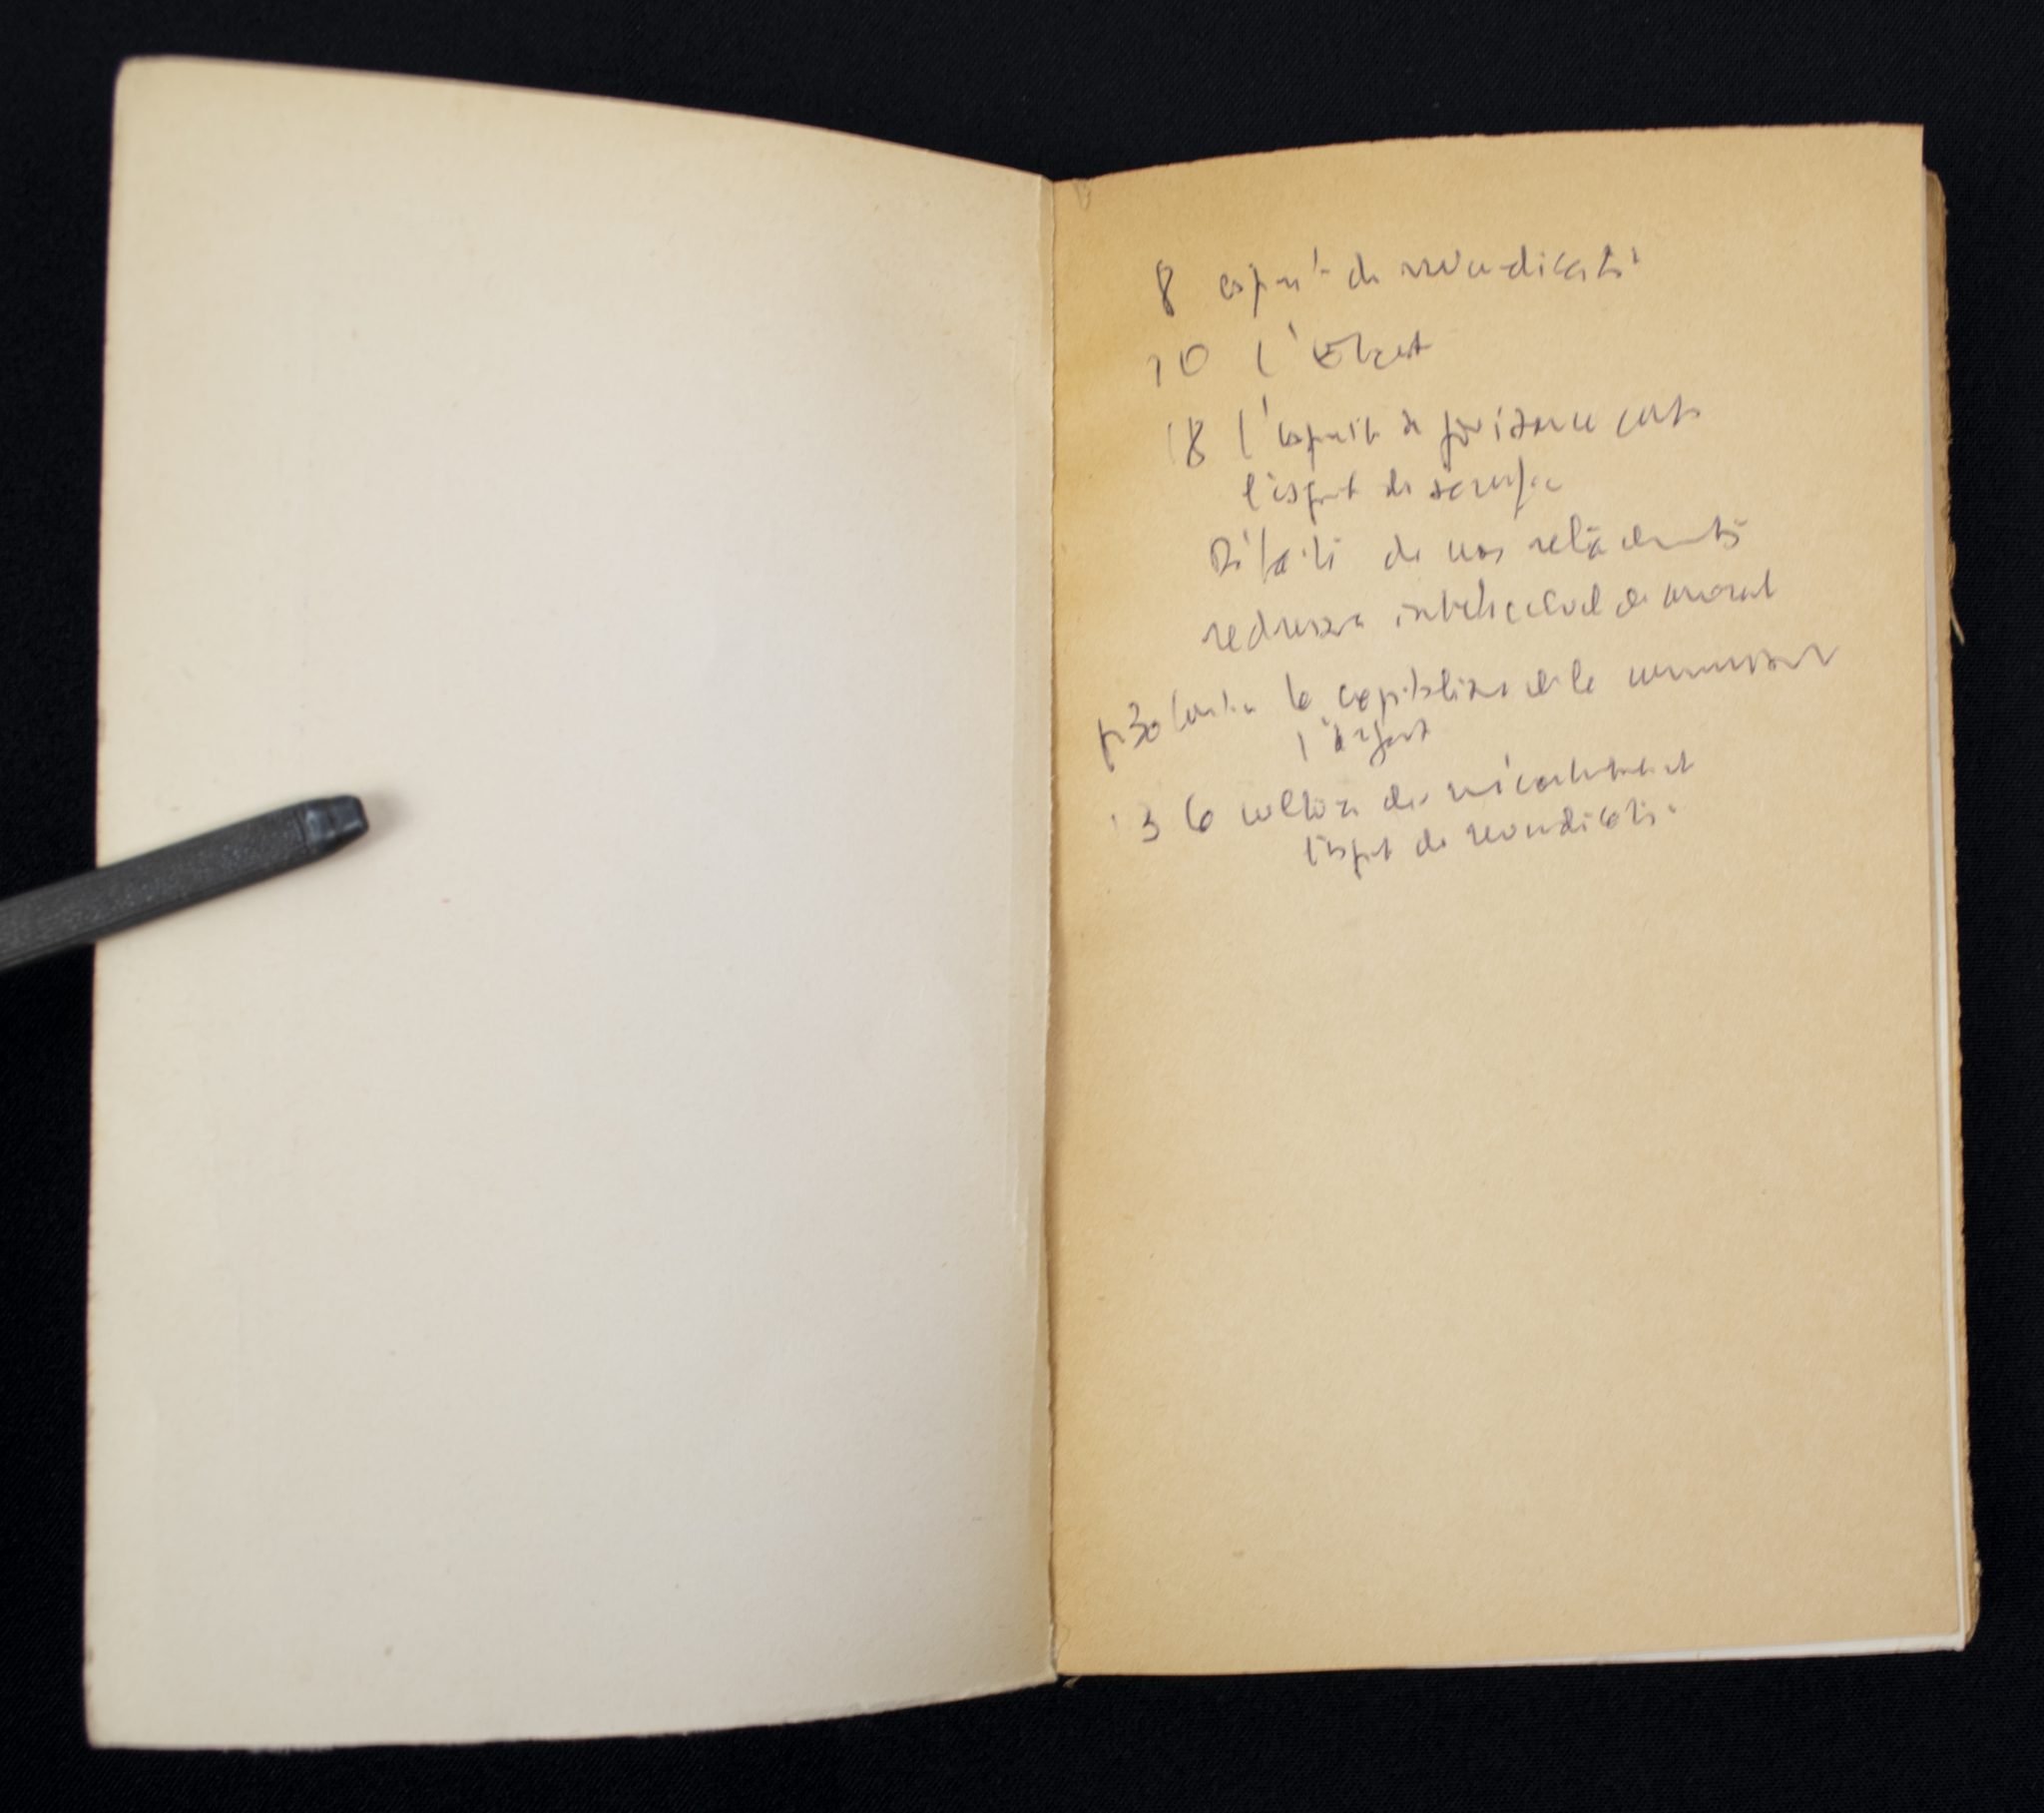 8 esprit de revendicatio
10 l'Effort
18 l'esprit de jouissance contre
l'esprit de sacrifice
Défaite de nos relâchements
redressem intellectuel et moral
p30 contre le capitalisme et le communisme
l'argent
36 culture du mécontentement
l'esprit de revendicatio